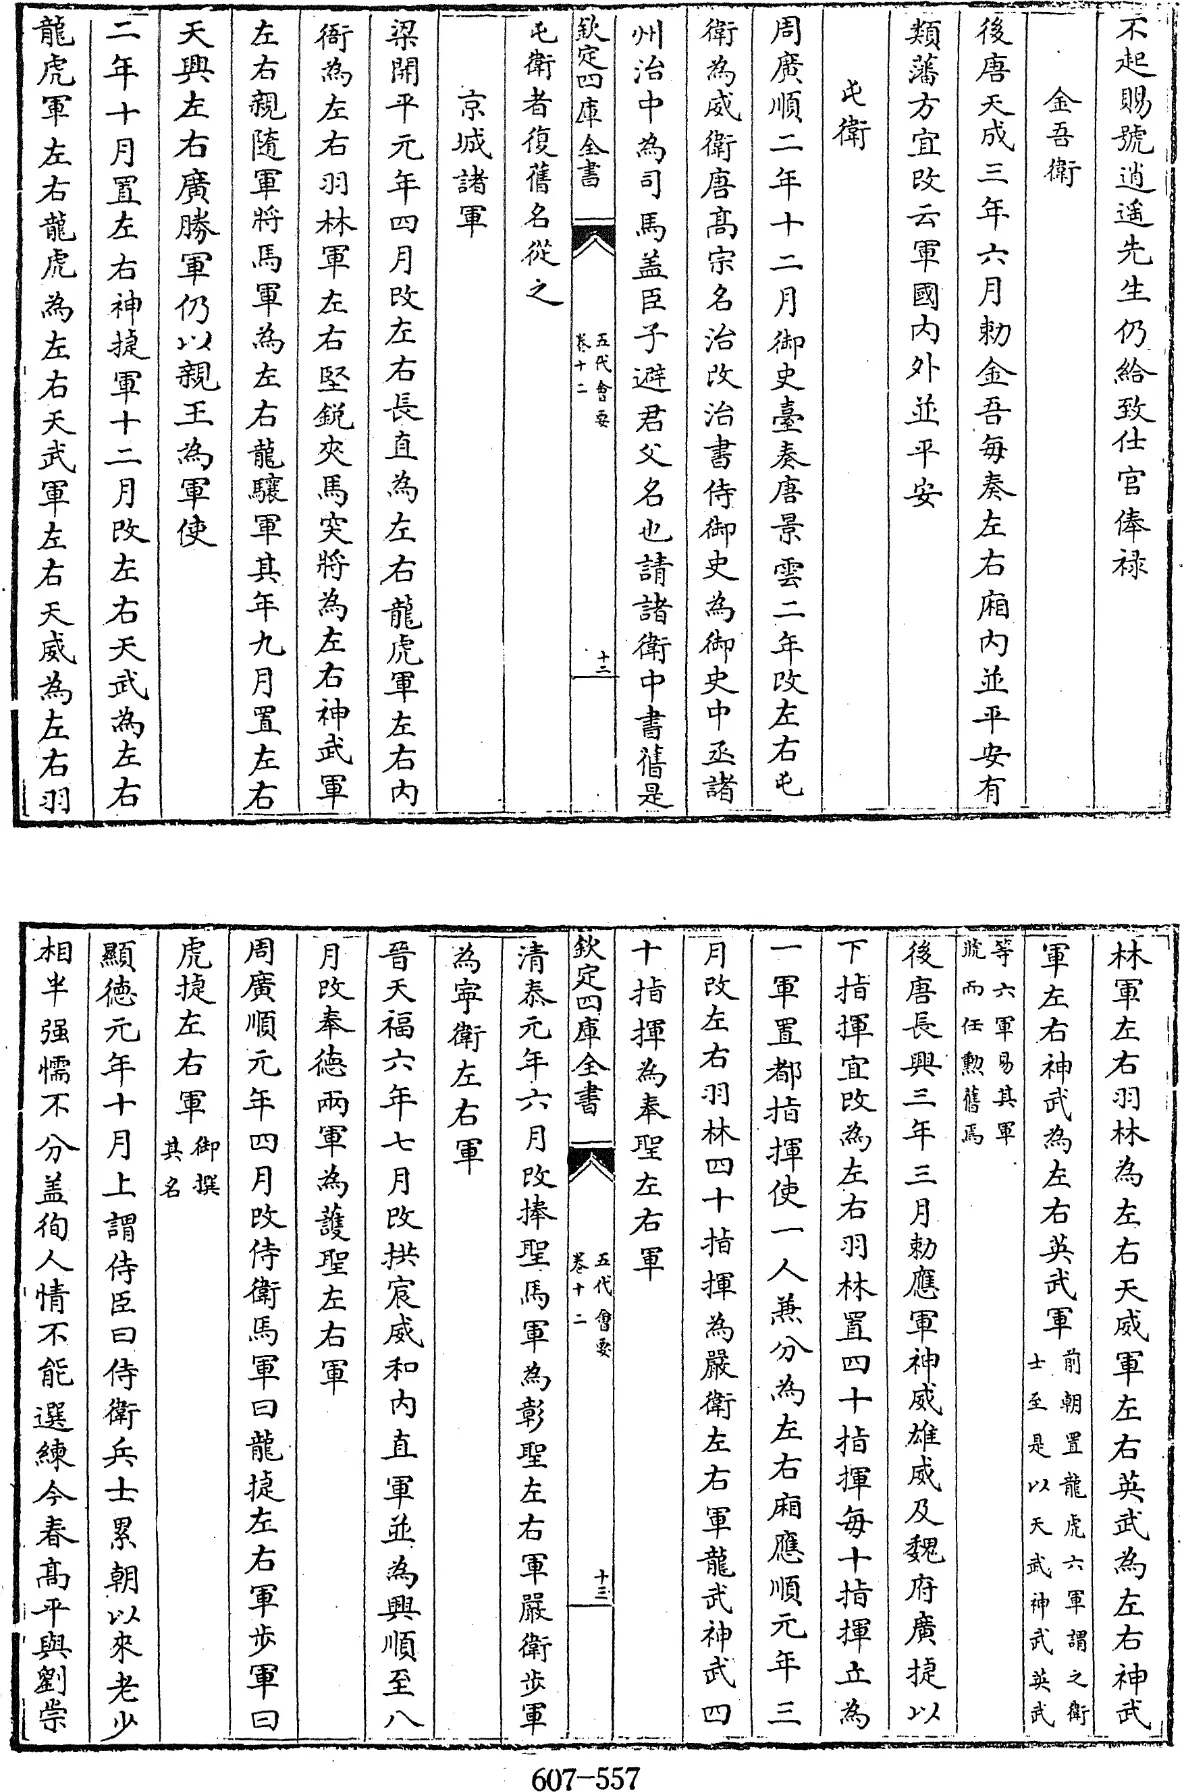 不起賜號逍遥先生仍給致仕官俸禄
金吾衛
後唐天成三年六月勅金吾每奏左右廂内並平安有
類藩方宜改云軍國内外並平安
屯衛
周廣順二年十二月御史臺奏唐景雲二年改左右屯
衛為威衛唐髙宗名治改治書侍御史為御史中丞諸
州治中為司馬盖臣子避君父名也請諸衛中書舊是
欽定四庫全書
五代會要
卷十二
十二
屯衛者復舊名從之
京城諸軍
梁開平元年四月改左右長直為左右龍虎軍左右内
衙為左右羽林軍左右堅鋭夾馬突將為左右神武軍
左右親隨軍將馬軍為左右龍驤軍其年九月置左右
天興左右廣勝軍仍以親王為軍使
二年十月置左右神捷軍十二月改左右天武為左右
龍虎軍左右龍虎為左右天武軍左右天威為左右羽
林軍左右羽林為左右天威軍左右英武為左右神武
軍左右神武為左右英武軍
前朝置龍虎六軍謂之衛
士至是以天武神武英武
等六軍易其軍
號而任勲舊焉
後唐長興三年三月勅應軍神威雄威及魏府廣捷以
下指揮宜改為左右羽林置四十指揮每十指揮立為
一軍置都指揮使一人兼分為左右廂應順元年三
月改左右羽林四十指揮為嚴衛左右軍龍武神武四
十指揮為奉聖左右軍
欽定四庫全書
五代會要
卷十二
十三
清泰元年六月改捧聖馬軍為彰聖左右軍嚴衛步軍
為寧衛左右軍
晉天福六年七月改拱宸威和内直軍並為興順至八
月改奉徳兩軍為護聖左右軍
周廣順元年四月改侍衛馬軍曰龍捷左右軍步軍曰
虎捷左右軍
御撰
其名
顯徳元年十月上謂侍臣曰侍衛兵士累朝以來老少
相半强懦不分盖徇人情不能選練今春髙平與劉崇
607-557